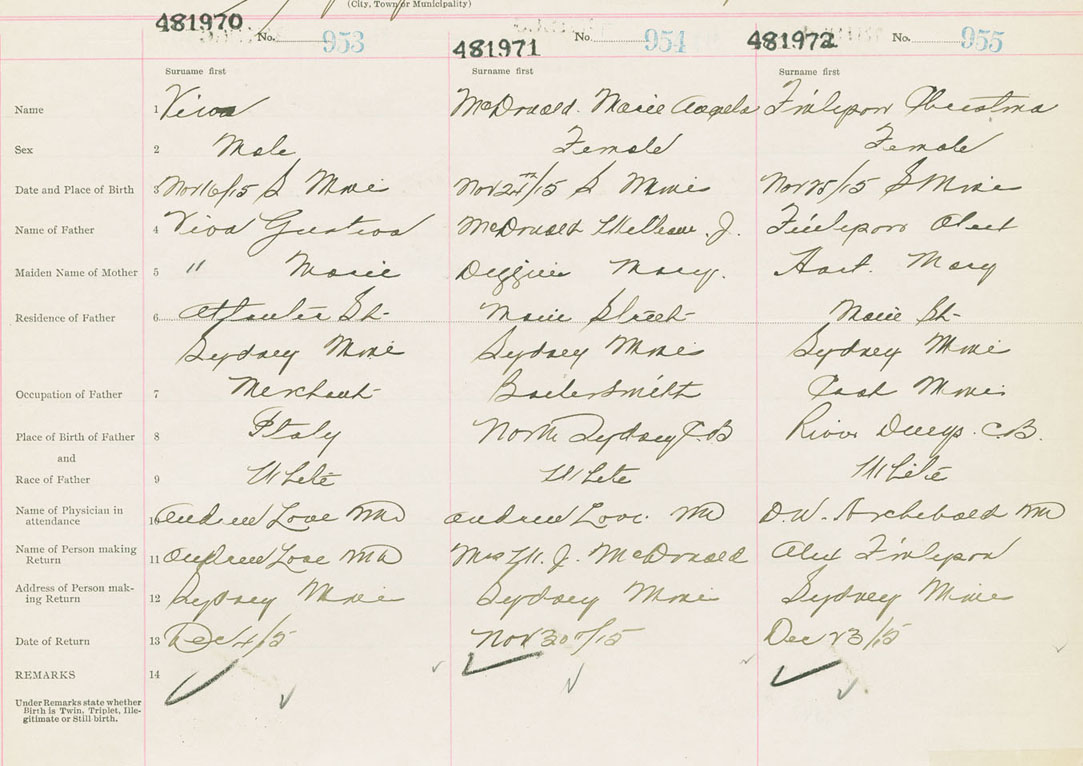 (City, Town or Municipality)
481970 No. 953 481971 No. 954 481972 No. 955
Surname first Surname first Surname first
Name 1 Viva McDonald. Marie Angela Finlayson Christina
Sex 2 Male Female Female
Date and Place of Birth 3 Nov 16/15 S Mines Nov 24th/15 S Mines Nov 25/15 S Mines
Name of Father 4 Viva McDonald William J. Finlayson
Maiden Name of Mother 5 " Marie Mary. Hart. Mary
Residence of Father 6 Atlantic St- Main Street- Main St-
Sydney Mines Sydney Mines Sydney Mines
Occupation of Father 7 Merchant Boilersmith
Place of Birth of Father 8 Italy North Sydney C.B River Denys. C.B.
and
Race of Father 9 White White White
Name of Physician in
attendance 10 Andrew Love MD Andrew Love. MD D.W. Archibald MD
Name of Person making
Return 11 Andrew Love MD Mrs W. J. McDonald Alex Finlayson
Address of Person mak-
ing Return 12 Sydney Mines Sydney Mines Sydney Mines
Date of Return 13 Dec 4/15 Nov 30/15 Dec 23/15
REMARKS 14
Under Remarks state whether
Birth is Twin, Triplet, Ille-
gitimate or Still birth.